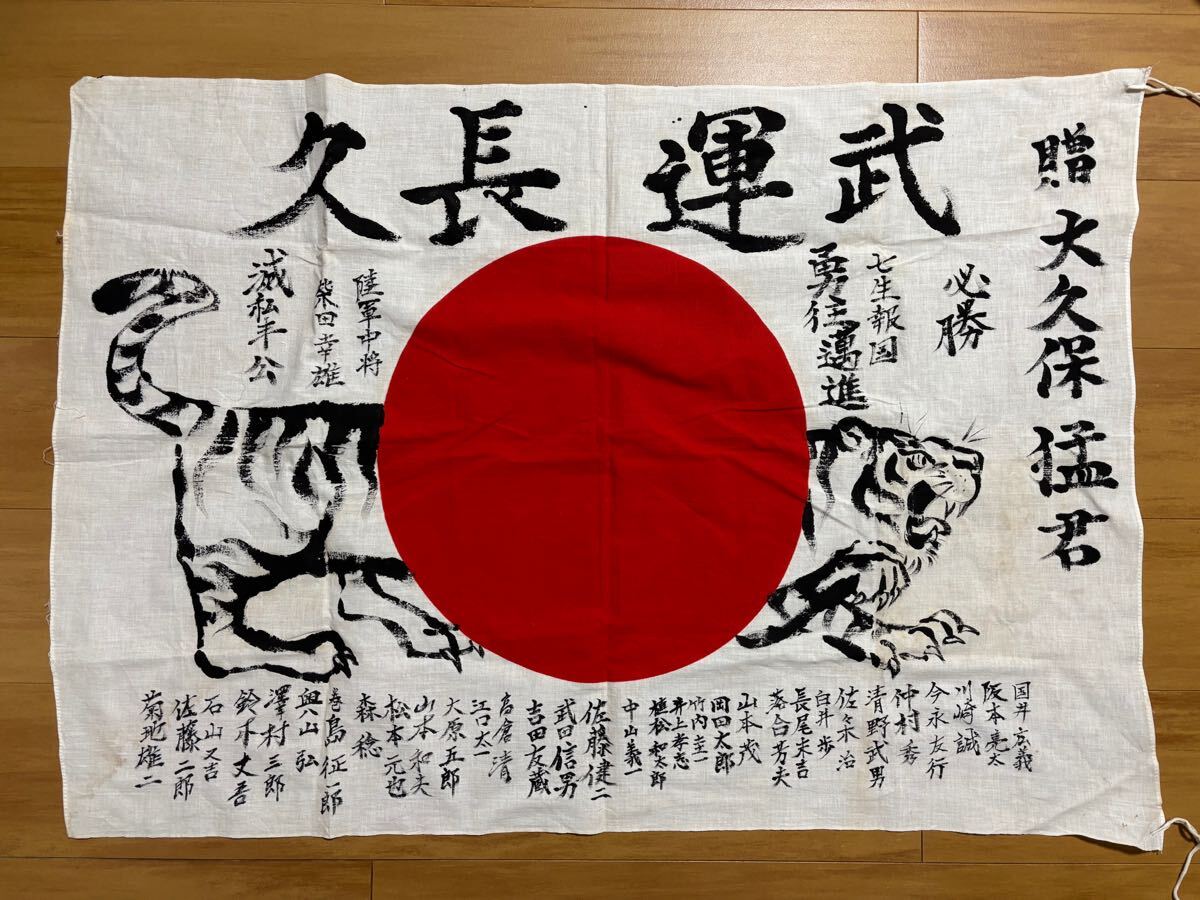 贈 大久保猛君
武運長久
必勝
七生報国
勇往邁進
陸軍中将
柴田幸雄
滅私奉公
国井方義
阪本亮太
川崎誠
今永友行
仲村秀
清野武男
佐々木治
白井歩
長尾末吉
落合芳夫
山本茂
岡田太郎
竹内圭一
井上孝志
植松和太郎
中山義一
佐藤健二
武田信男
吉田友蔵
高倉清
江口太一
大原五郎
山本和夫
松本元也
森稔
巻島征一郎
奥山弘
澤村三郎
鈴木丈吾
石山又吉
佐藤二郎
菊地雄二